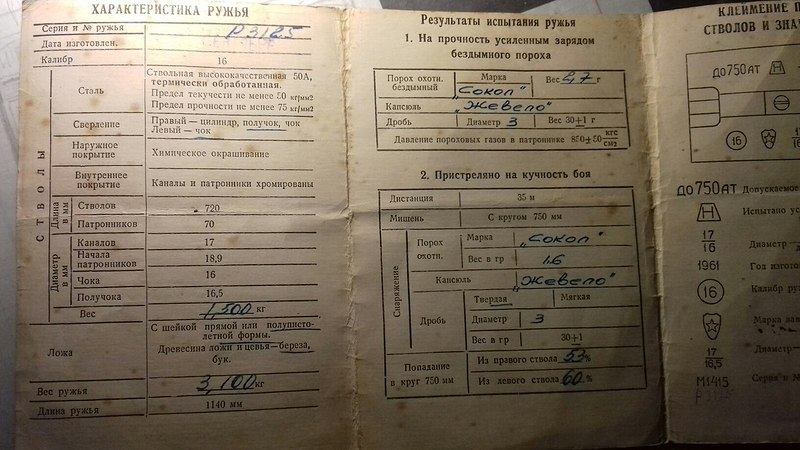 ХАРАКТЕРИСТИКА РУЖЬЯ
Серия и № ружья Р3125
Дата изготовлен.
Калибр 16
СТВОЛЫ
Сталь
Ствольная высококачественная 50А,
термически обработанная.
Предел текучести не менее 50 кг/мм2
Предел прочности не менее 75 кг/мм2
Сверление
Правый — цилиндр, получок, чок
Левый — чок
Наружное покрытие
Химическое окрашивание
Внутреннее покрытие
Каналы и патронники хромированы
Длина в мм
Стволов 720
Патронников 70
Диаметр в мм
Каналов 17
Начала патронников 18,9
Чока 16
Получока 16,5
Вес 1,500 кг
Ложа
С шейкой прямой или полуписто-
летной формы.
Древесина ложи и цевья—береза,
бук.
Вес ружья 3,100 кг
Длина ружья 1140 мм
Результаты испытания ружья
1. На прочность усиленным зарядом
бездымного пороха
Порох охотн. бездымный
Марка „Сокол"
Вес 2,7 г
Капсюль „Жевело"
Дробь Диаметр 3 Вес 30±1 г
Давление пороховых газов в патроннике 850±50 кгс/см2
2. Пристреляно на кучность боя
Дистанция 35 м
Мишень С кругом 750 мм
Снаряжение
Порох охотн.
Марка „Сокол"
Вес в гр 1.6
Капсюль „Жевело"
Дробь
Твердая Мягкая
Диаметр 3
Вес в гр 30±1
Попадание
в круг 750 мм
Из правого ствола 53%
Из левого ствола 60%
КЛЕЙМЕНИЕ
СТВОЛОВ И
ДО750АТ
16
ДО750АТ Допускаемое
Испытано
17/16 Диаметр
1961 Год
16 Калибр
Марка
17/16,5 Диаметр
М1415 Серия и